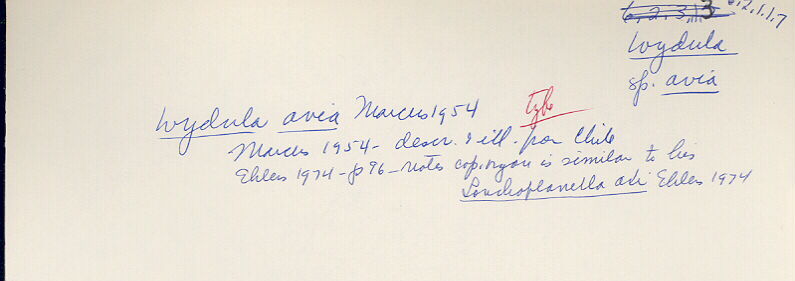 6.2.3.13 6.2.1.1.7
Woydula
sp. avia
Woydula avia Marcus 1954 type
Marcus 1954 - descr. & ill. from Chile
Ehlers 1974 - p 96 - notes cop. organ is similar to his
Londhoplanella axi Ehlers 1974